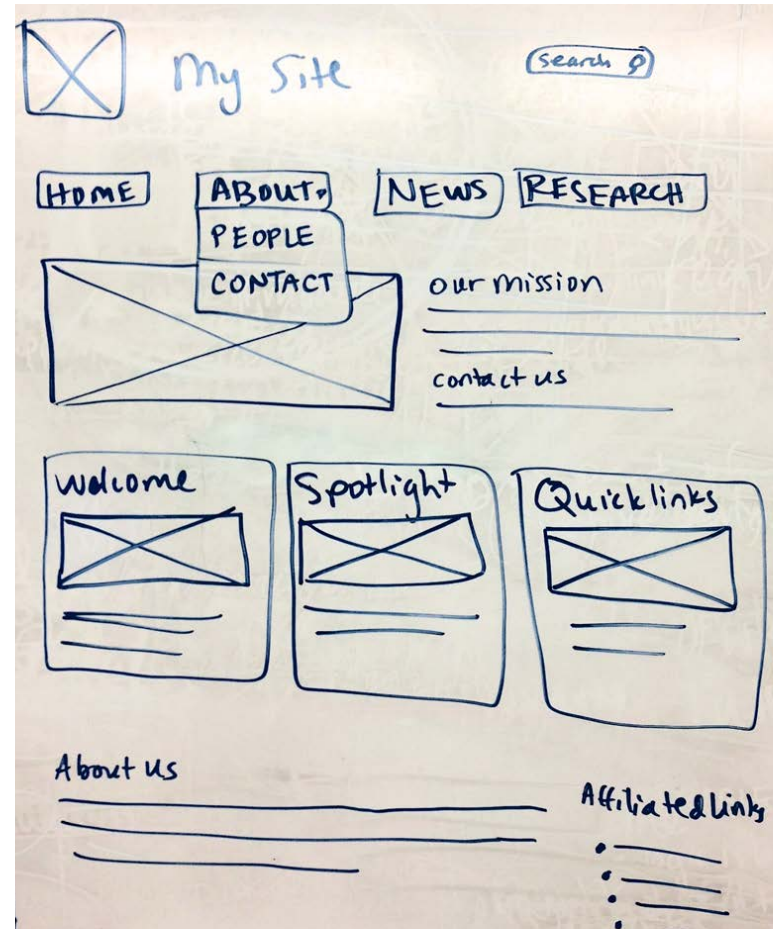 My Site
search
HOME
ABOUT
NEWS
RESEARCH
PEOPLE
CONTACT
our mission
contact us
Welcome
Spotlight
Quicklinks
About us
Affiliated Links